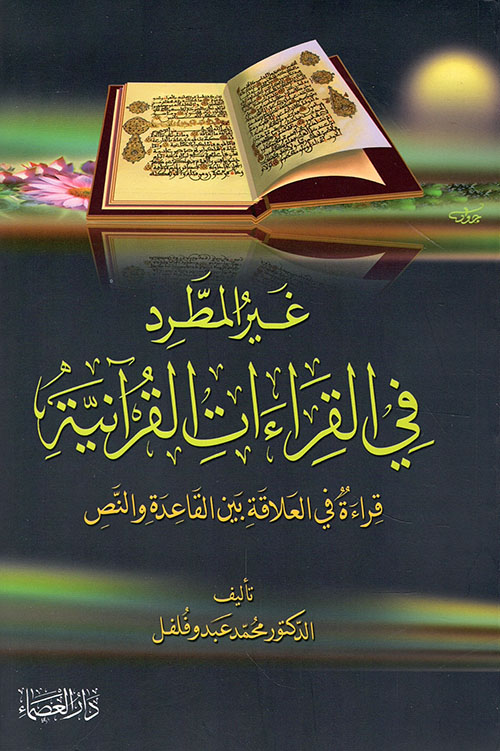 غَيرُ المطَّرِد
فِي القِرَاءَاتِ القُرآنيَّةِ
قِراءةٌ في العَلاقَةِ بَينَ القَاعِدَةِ والنَّصِ
تأليف
الدّكتور محمّد عَبدو فُلفل
دَارُ العَصمَاءِ